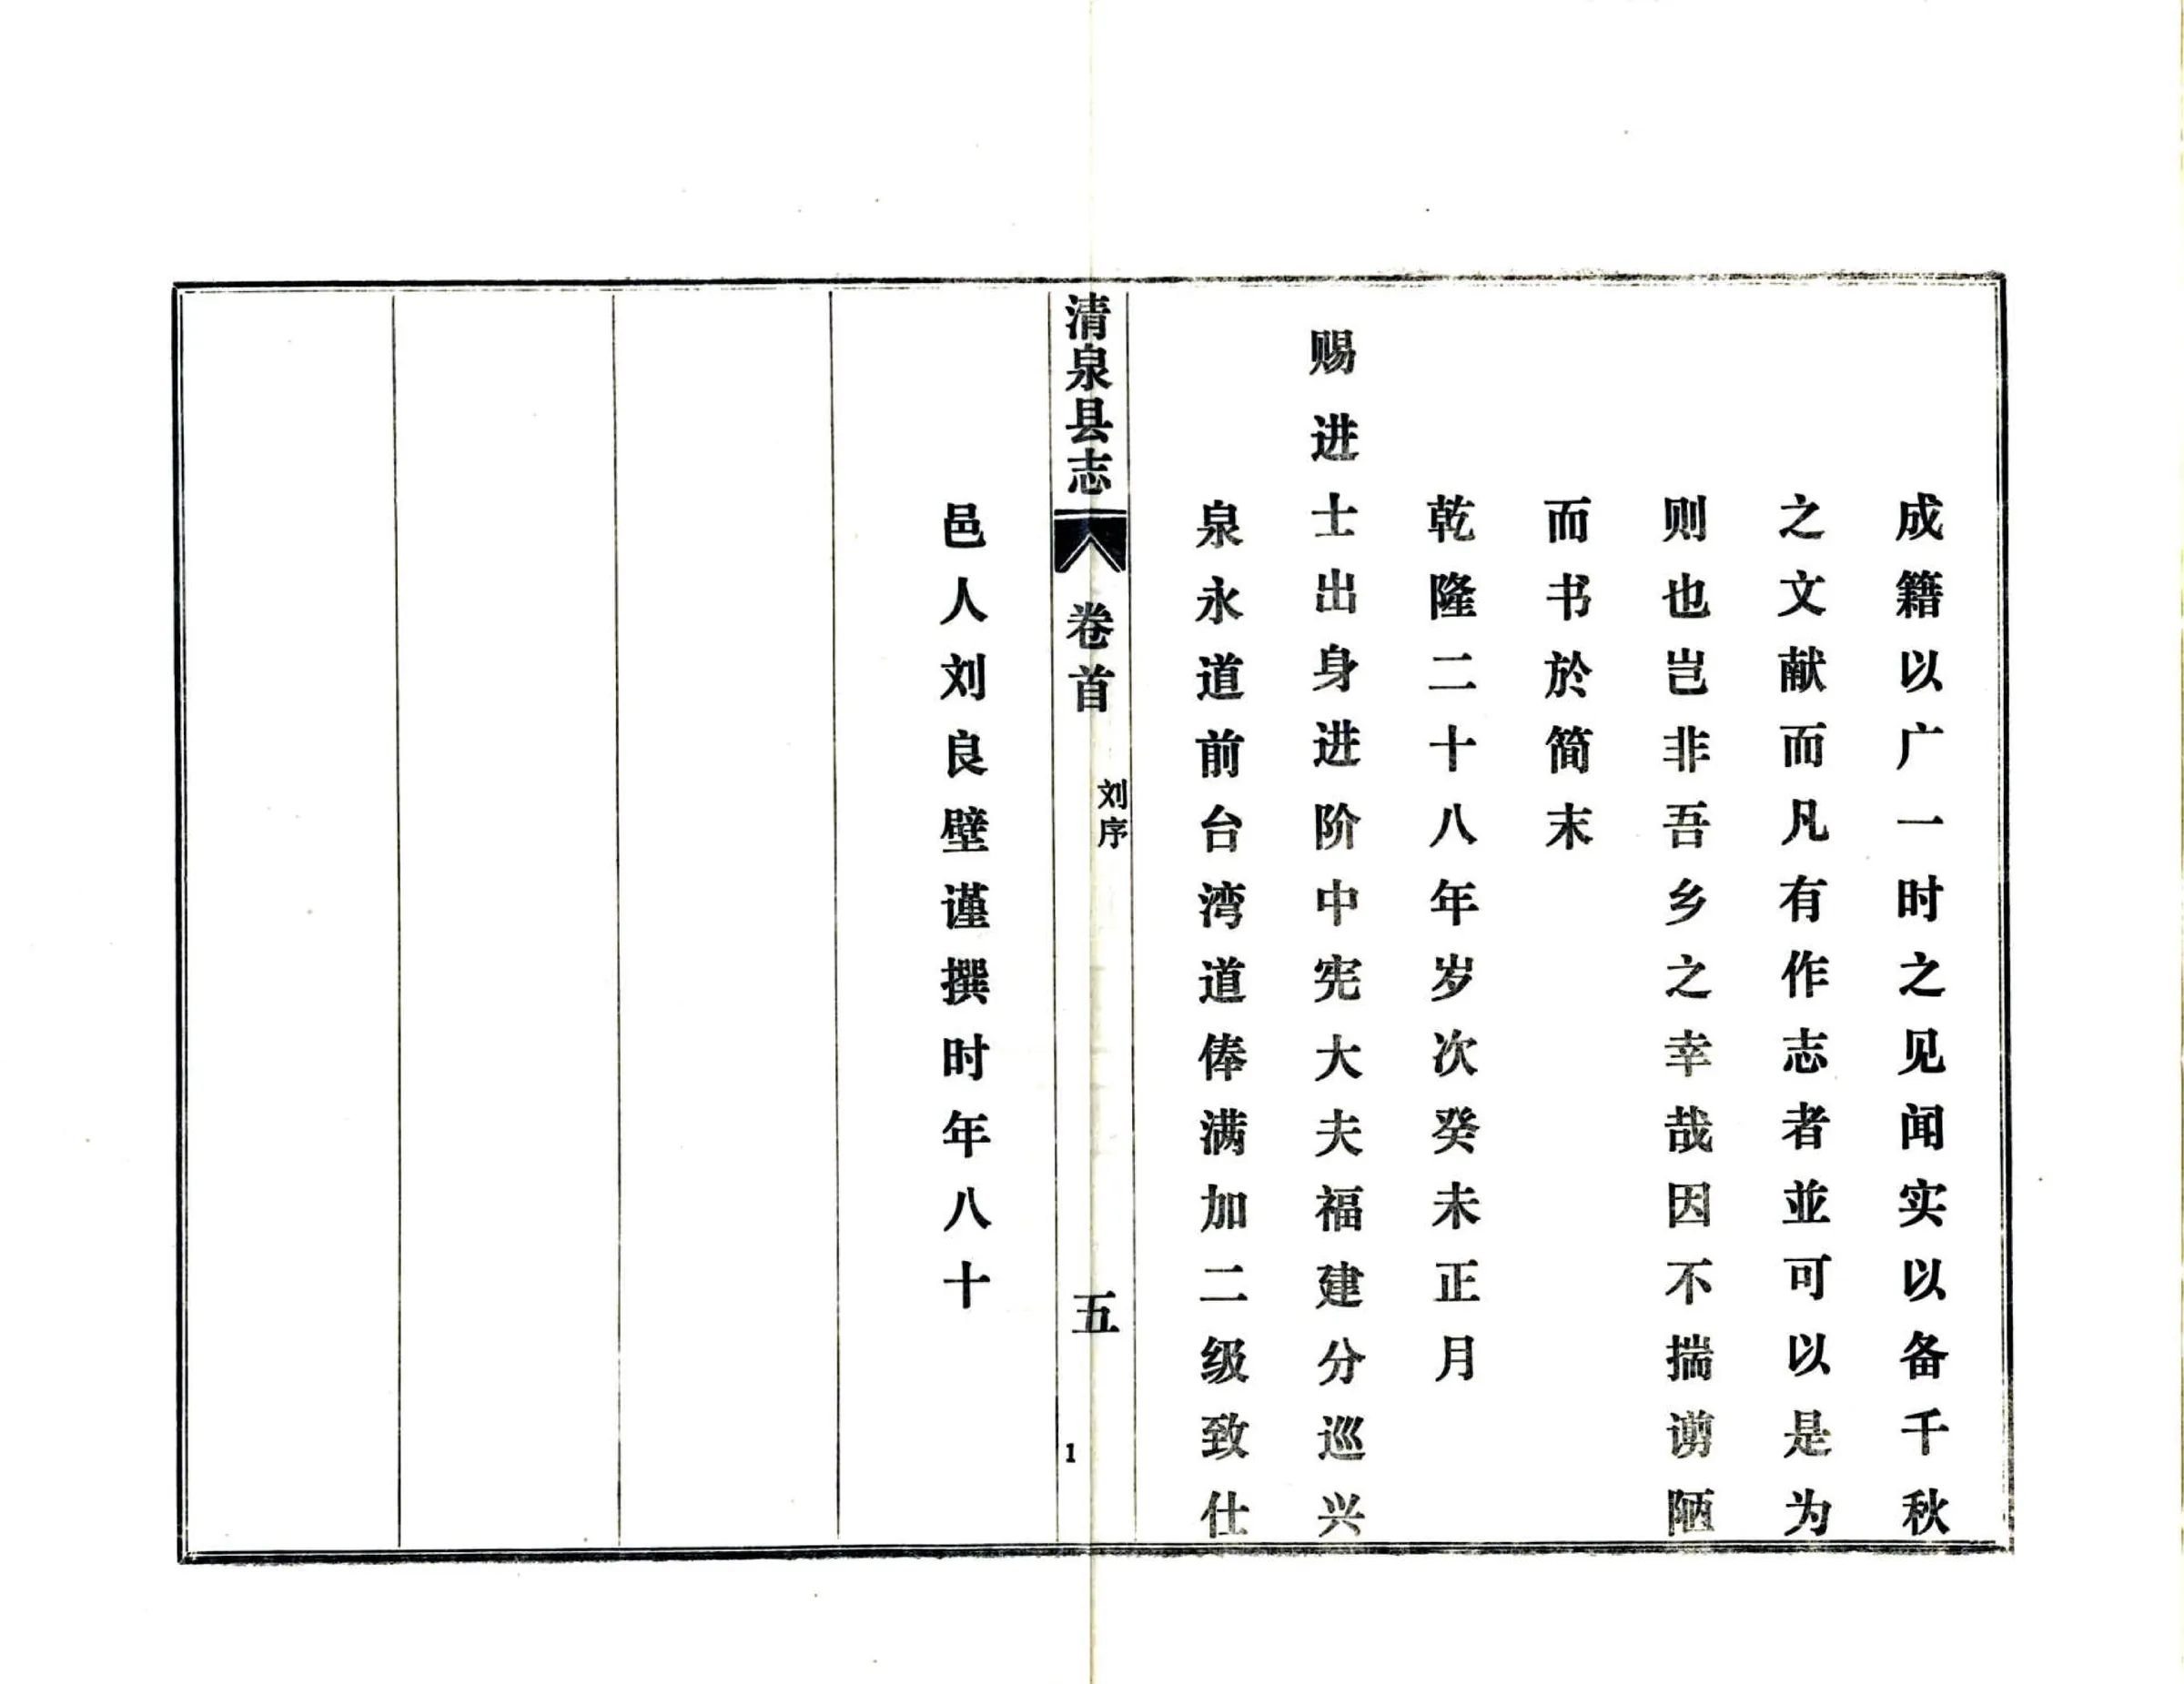 成籍以广一时之见闻实以备千秋
之文献而凡有作志者並可以是为
则也岂非吾乡之幸哉因不揣谫陋
而书於简末
乾隆二十八年岁次癸未正月
赐进士出身进阶中宪大夫福建分巡兴
泉永道前台湾道俸满加二级致仕
清泉县志
卷首
刘序
五
1
邑人刘良壁谨撰时年八十